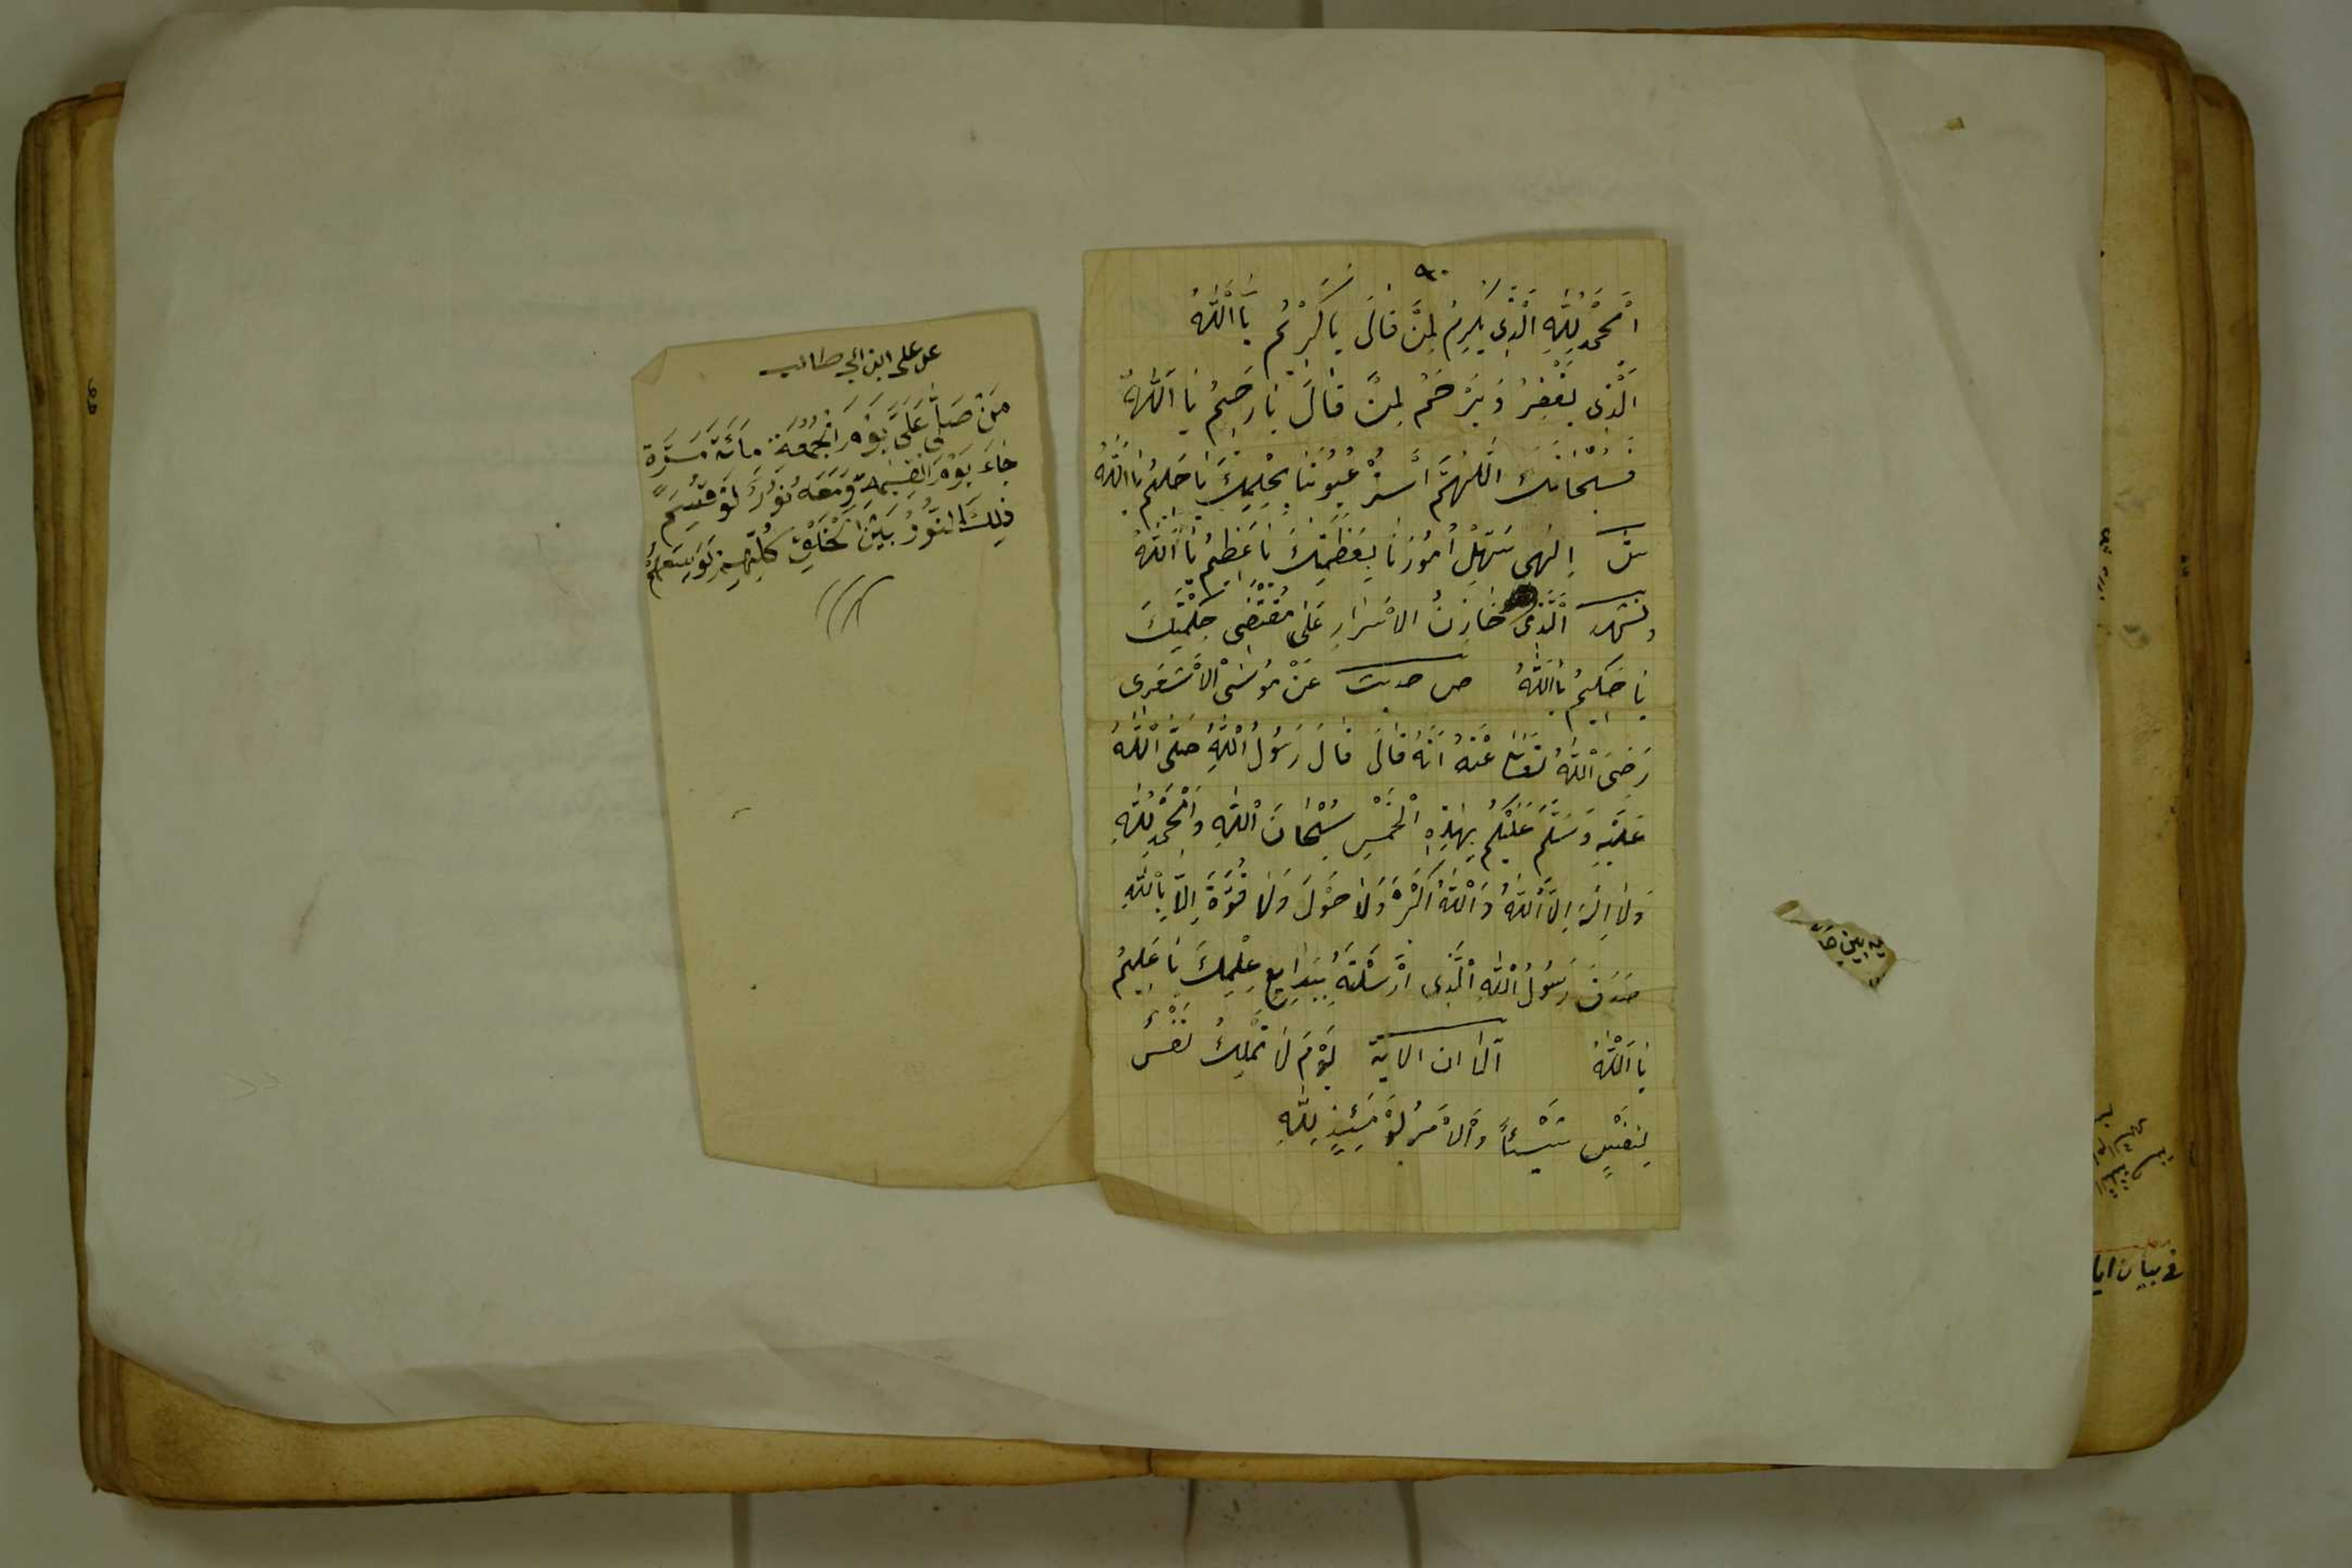 ٩٠
اَلْحَمْدُ لِلّٰهِ الَّذِى يُكْرِمُ لِمَنْ قَالَ يَا كَرِيمُ يَا اَللّٰهُ
اَلَّذِى يَغْفِرُ وَيَرْحَمُ لِمَنْ قَالَ يَا رَحِيمُ يَا اَللّٰهُ
فَسُبْحَانَكَ اَللّٰهُمَّ اسْتُرْ عُيُوبَنَا بِحِلْمِكَ يَا حَلِيمُ يَا اَللّٰهُ
اِلٰهِى سَهِّلْ اُمُورَنَا بِعَظَمَتِكَ يَا عَظِيمُ يَا اَللّٰهُ
ونشهد اَلَّذِى خَازِنُ الْاَسْرَارِ عَلٰى مُقْتَضٰى حِكْمَتِكَ
يَا حَكِيمُ يَا اَللّٰهُ ص حديث عَنْ مُوسَى الْاَشْعَرِى
رَضِىَ اللّٰهُ تَعَالٰى عَنْهُ اَنَّهُ قَالَ قَالَ رَسُولُ اللّٰهِ صَلَّى اللّٰهُ
عَلَيْهِ وَسَلَّمَ عَلَيْكُمْ بِهٰذِهِ الْخَمْسِ سُبْحَانَ اللّٰهِ وَالْحَمْدُ لِلّٰهِ
وَلَا اِلٰهَ اِلَّا اللّٰهُ وَاللّٰهُ اَكْبَرُ وَلَا حَوْلَ وَلَا قُوَّةَ اِلَّا بِاللّٰهِ
صَدَقَ رَسُولُ اللّٰهِ الَّذِى اَرْسَلْتَهُ بِبَدَايِعِ عِلْمِكَ يَا عَلِيمُ
يَا اَللّٰهُ الا ان الاية يَوْمَ لَا تَمْلِكُ نَفْسٌ
لِنَفْسٍ شَيْئًا وَالْاَمْرُ يَوْمَئِذٍ لِلّٰهِ
عن على ابن ابي طالب
مَنْ صَلَّى عَلَىَّ يَوْمَ الْجُمُعَةِ مِائَةَ مَرَّةٍ
جَاءَ يَوْمَ الْقِيٰمَةِ وَمَعَهُ نُورٌ لَوْ قُسِمَ
ذٰلِكَ النُّورُ بَيْنَ الْخَلْقِ كُلِّهِمْ لَوَسِعَهُمْ
فى بيان ايا